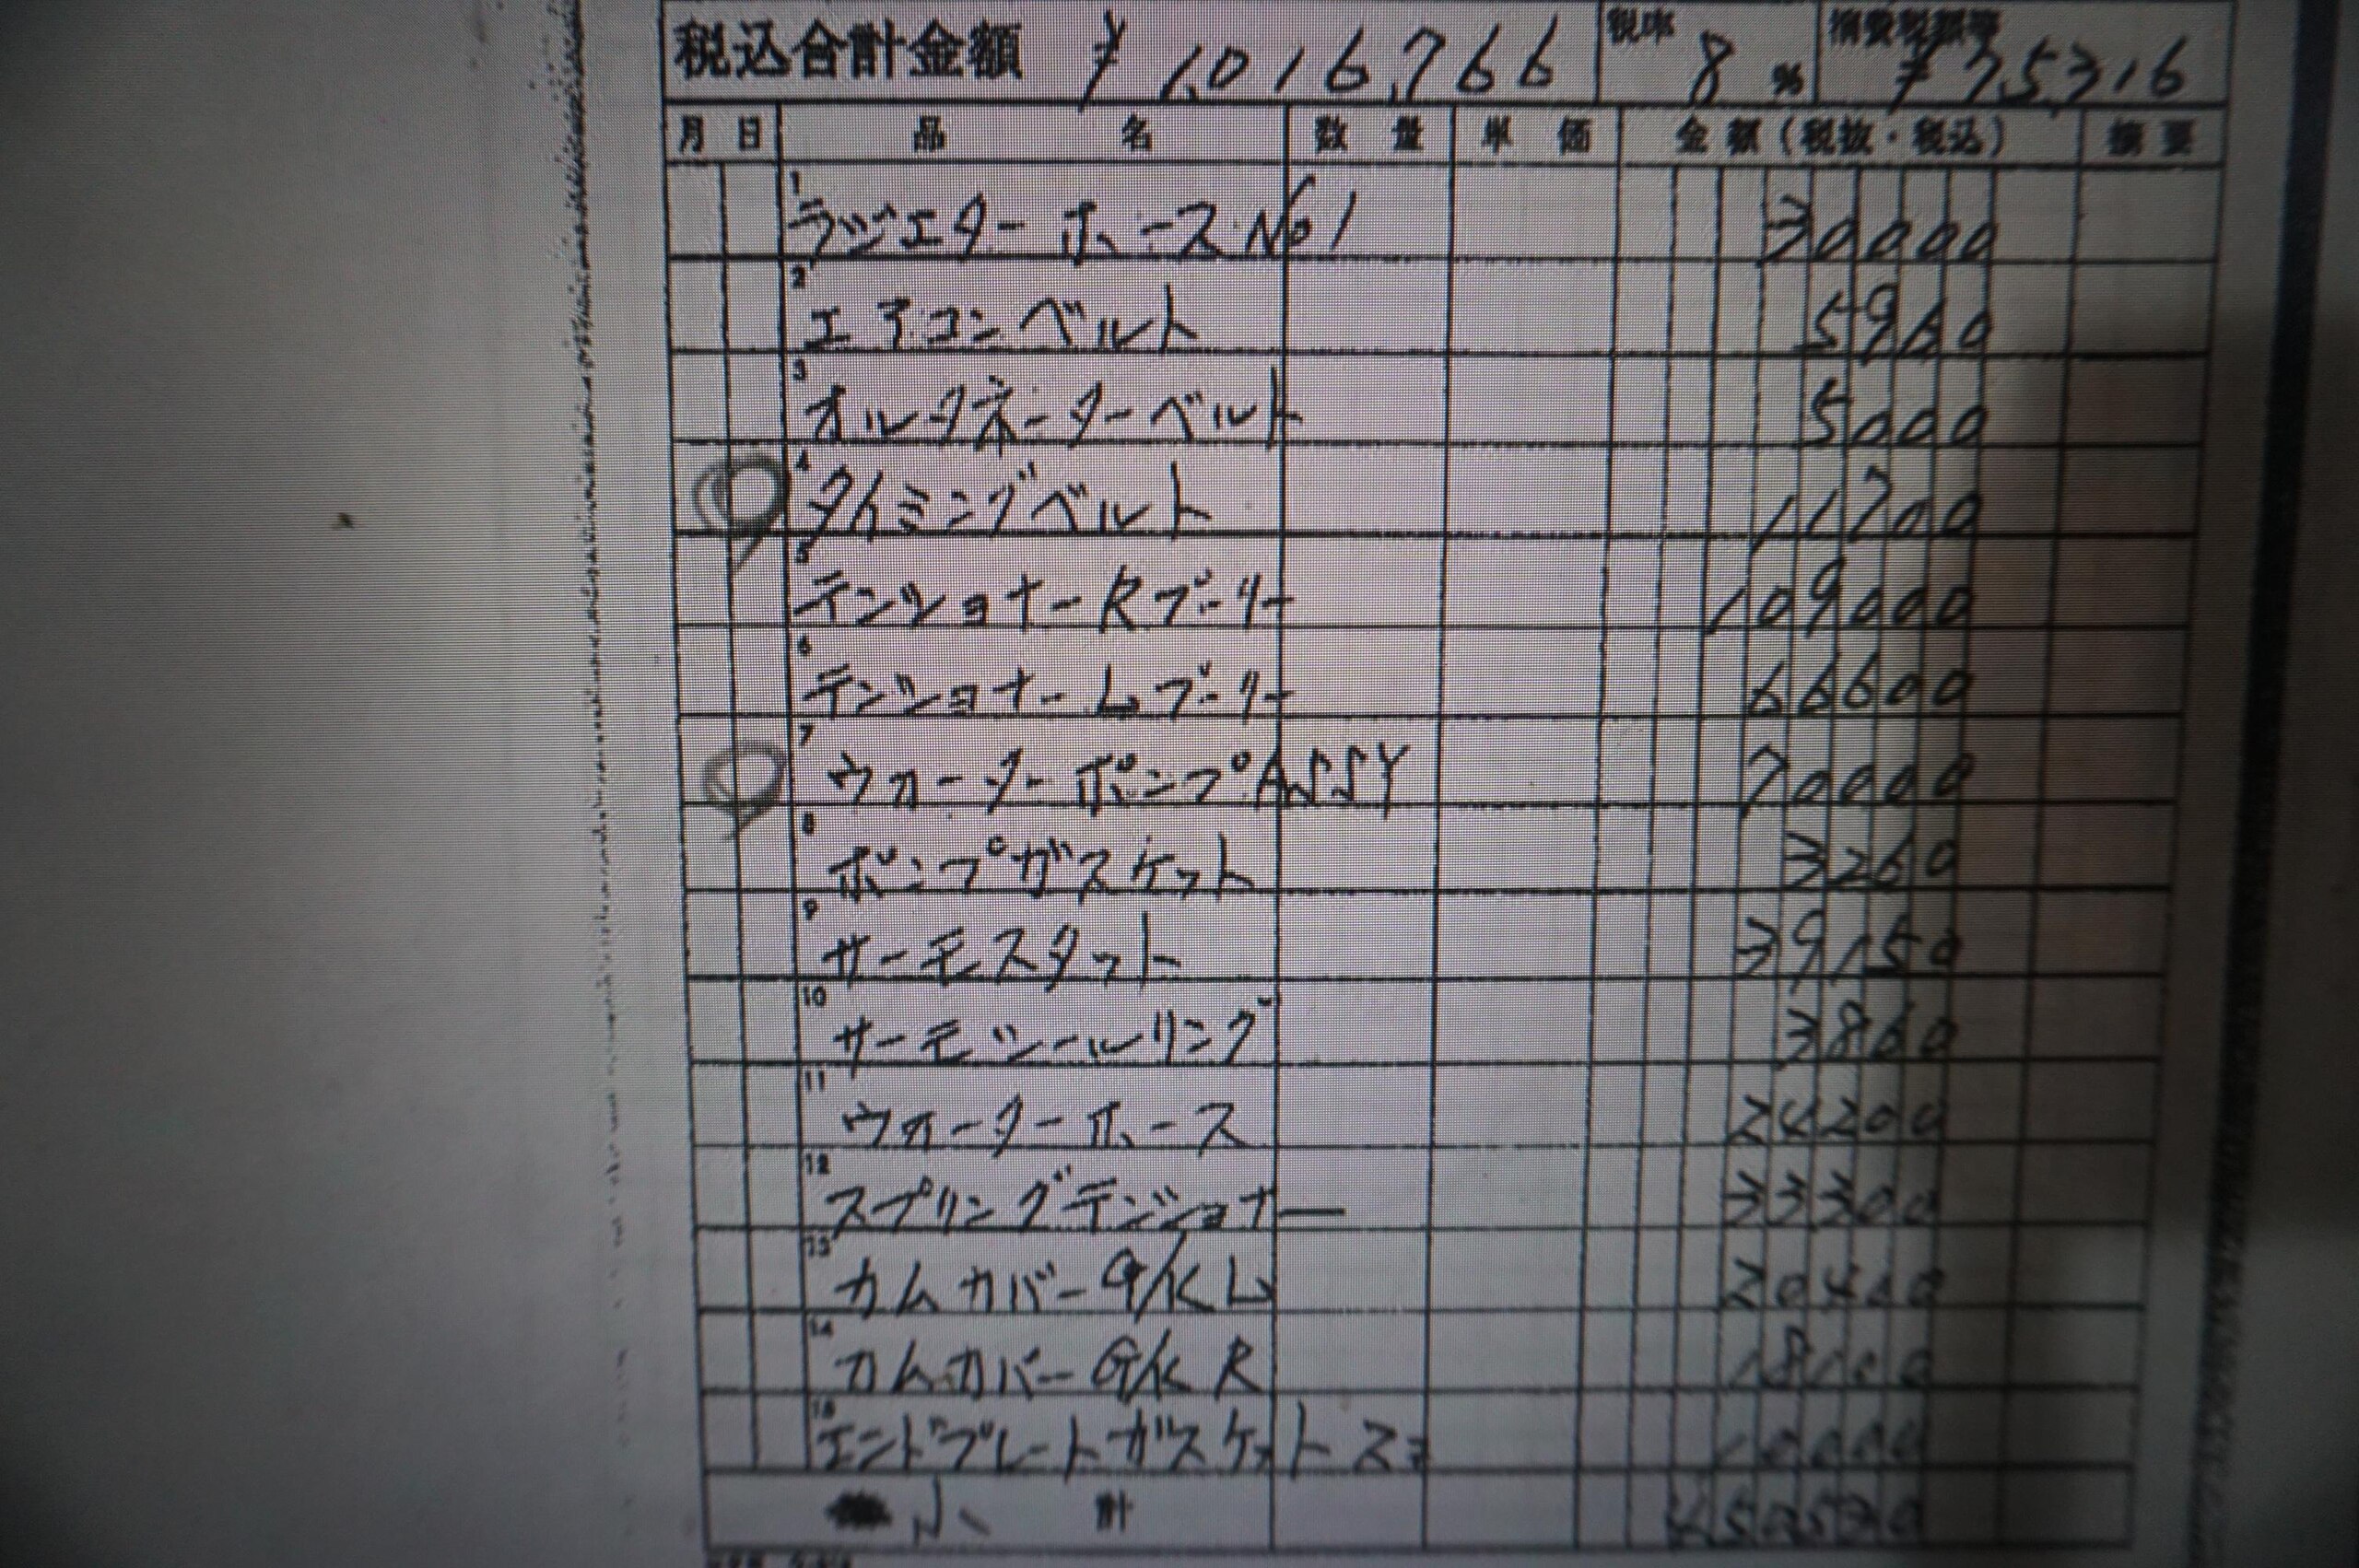 税込合計金額 ¥1,016,766 税率 8% 消費税額等 ¥75,316
月 日 品名 数量 単価 金額（税抜・税込） 摘要
1 ラジエターホース No1 30000
2 エアコンベルト 5960
3 オルタネーターベルト 5000
4 タイミングベルト 11700
5 テンショナーRプーリー 109000
6 テンショナーLプーリー 66600
7 ウォーターポンプASSY 70000
8 ポンプガスケット 3260
9 サーモスタット 39150
10 サーモシールリング 3860
11 ウォーターホース 24200
12 スプリングテンショナー 33300
13 カムカバーG/K L 20400
14 カムカバーG/K R 18100
15 エンドプレートガスケット 10000
小計 ¥450530